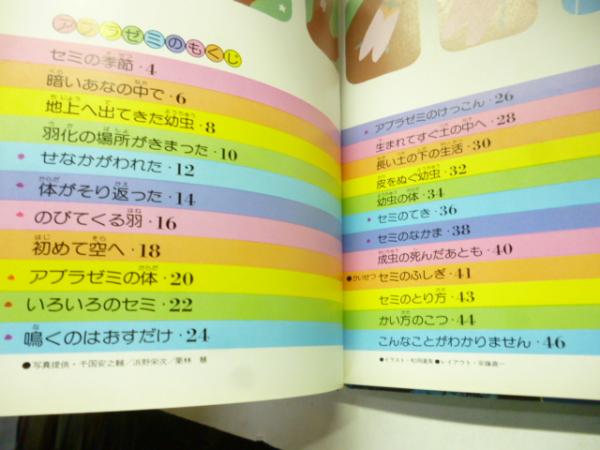 アブラゼミのもくじ
セミの季節・4
暗いあなの中で・6
地上へ出てきた幼虫・8
羽化の場所がきまった・10
せなかがわれた・12
体がそり返った・14
のびてくる羽・16
初めて空へ・18
アブラゼミの体・20
いろいろのセミ・22
鳴くのはおすだけ・24
●写真提供・千国安之輔/浜野栄次/栗林 慧
アブラゼミのけっこん・26
生まれてすぐ土の中へ・28
長い土の下の生活・30
皮をぬぐ幼虫・32
幼虫の体・34
セミのてき・36
セミのなかま・38
成虫の死んだあとも・40
●かいせつ セミのふしぎ・41
セミのとり方・43
かい方のこつ・44
こんなことがわかりません・46